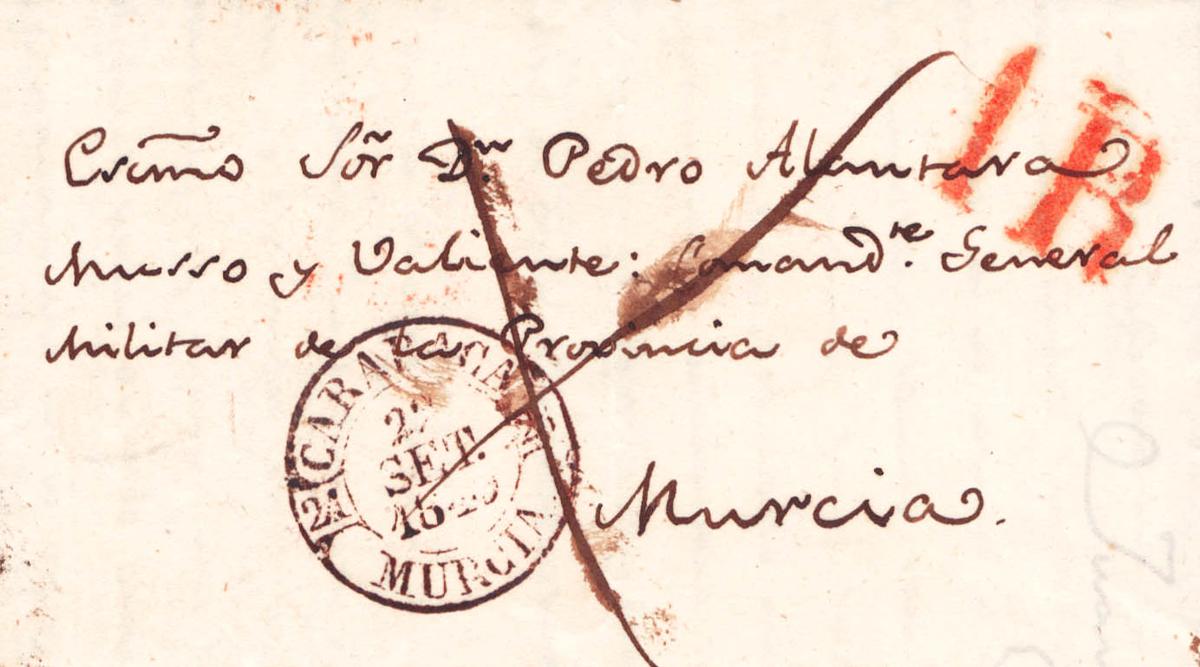 Excmo Sõr Dn. Pedro Alcantara
Musso y Valiente: Comandte. General
Militar de la Provincia de
Murcia.
1R
CARAVACA
SET.
MURCIA